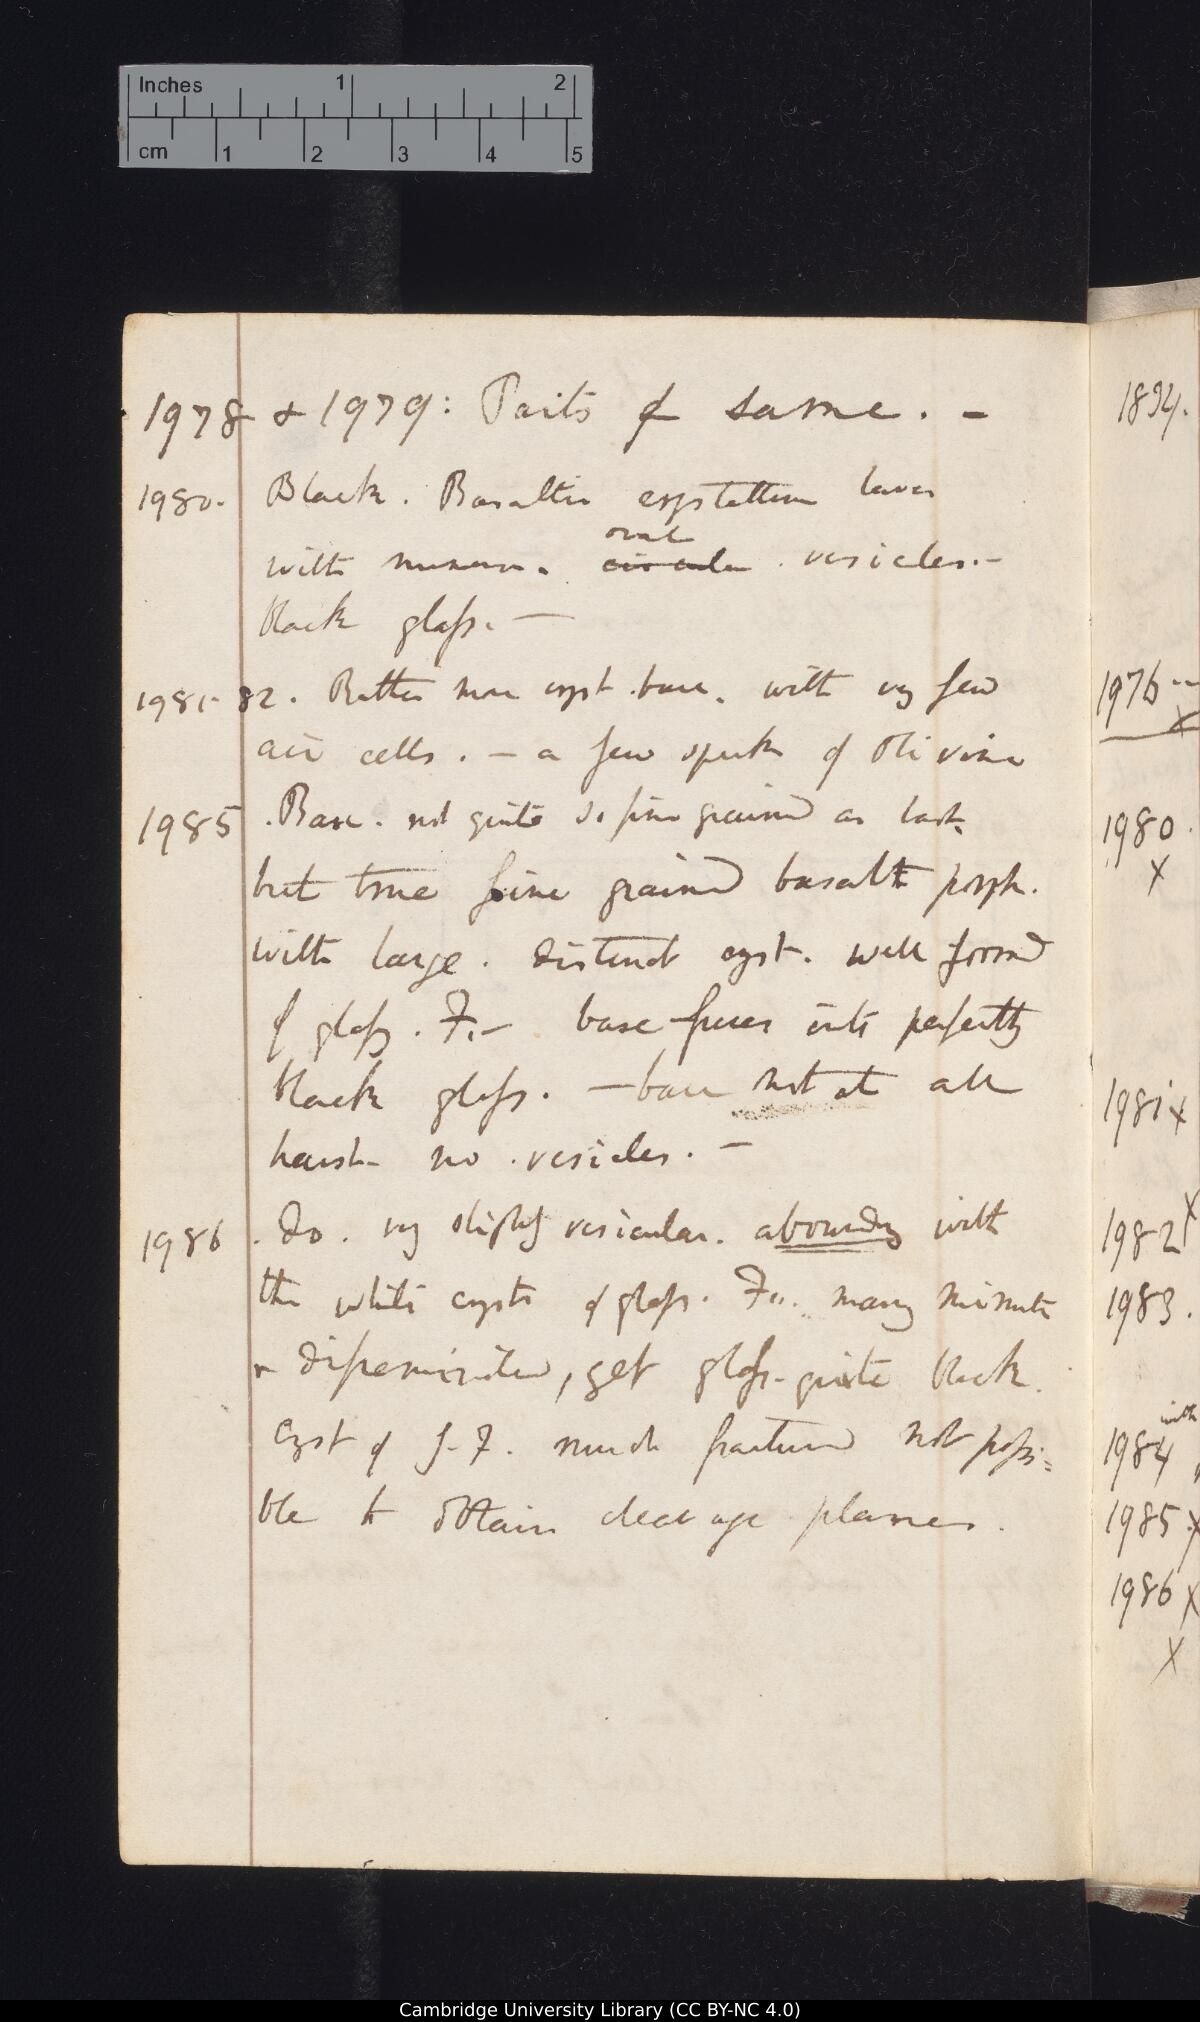 Inches 1 2
cm 1 2 3 4 5
1978 & 1979: Parts of same. -
1980. Black. Basaltic crystalline lava
oval
with numerou. circular vesicles. -
black glass. —
1981-82. Rather more cryst. base. with vy few
air cells. - a few specks of Olivine
1985. Base. not quite so fine grained as last.
but true fine grained basalt porph.
with large. distinct cryst. well formed
of glassy. F. - base fuses into perfectly
black glass. - base not at all
harsh no vesicles. -
1986. Do. vy slightly vesicular. abounding with
the white crysts of glass. F. many minute
disseminated, get glass quite black.
Cryst of g. F. much fractured not possi=
ble to obtain cleavage planes.
1834.
1976 -
X
1980.
X
1981 X
1982 X
1983.
with
1984
1985 X
1986 X
X
Cambridge University Library (CC BY-NC 4.0)